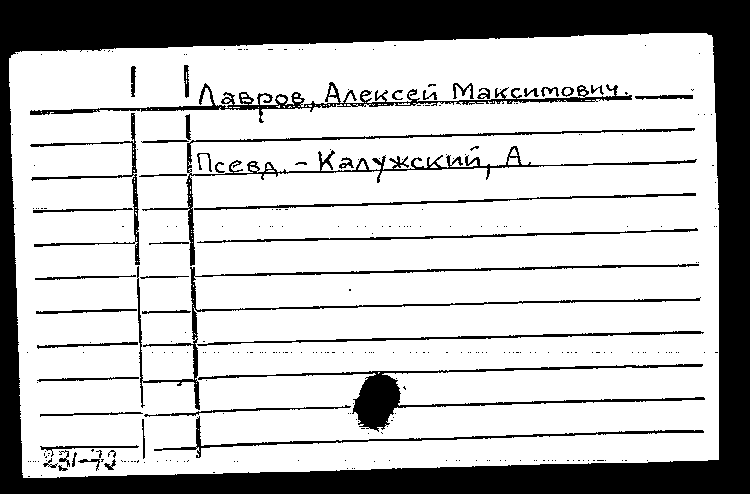 Лавров, Алексей Максимович.
Псевд. - Калужский, А.
231-70